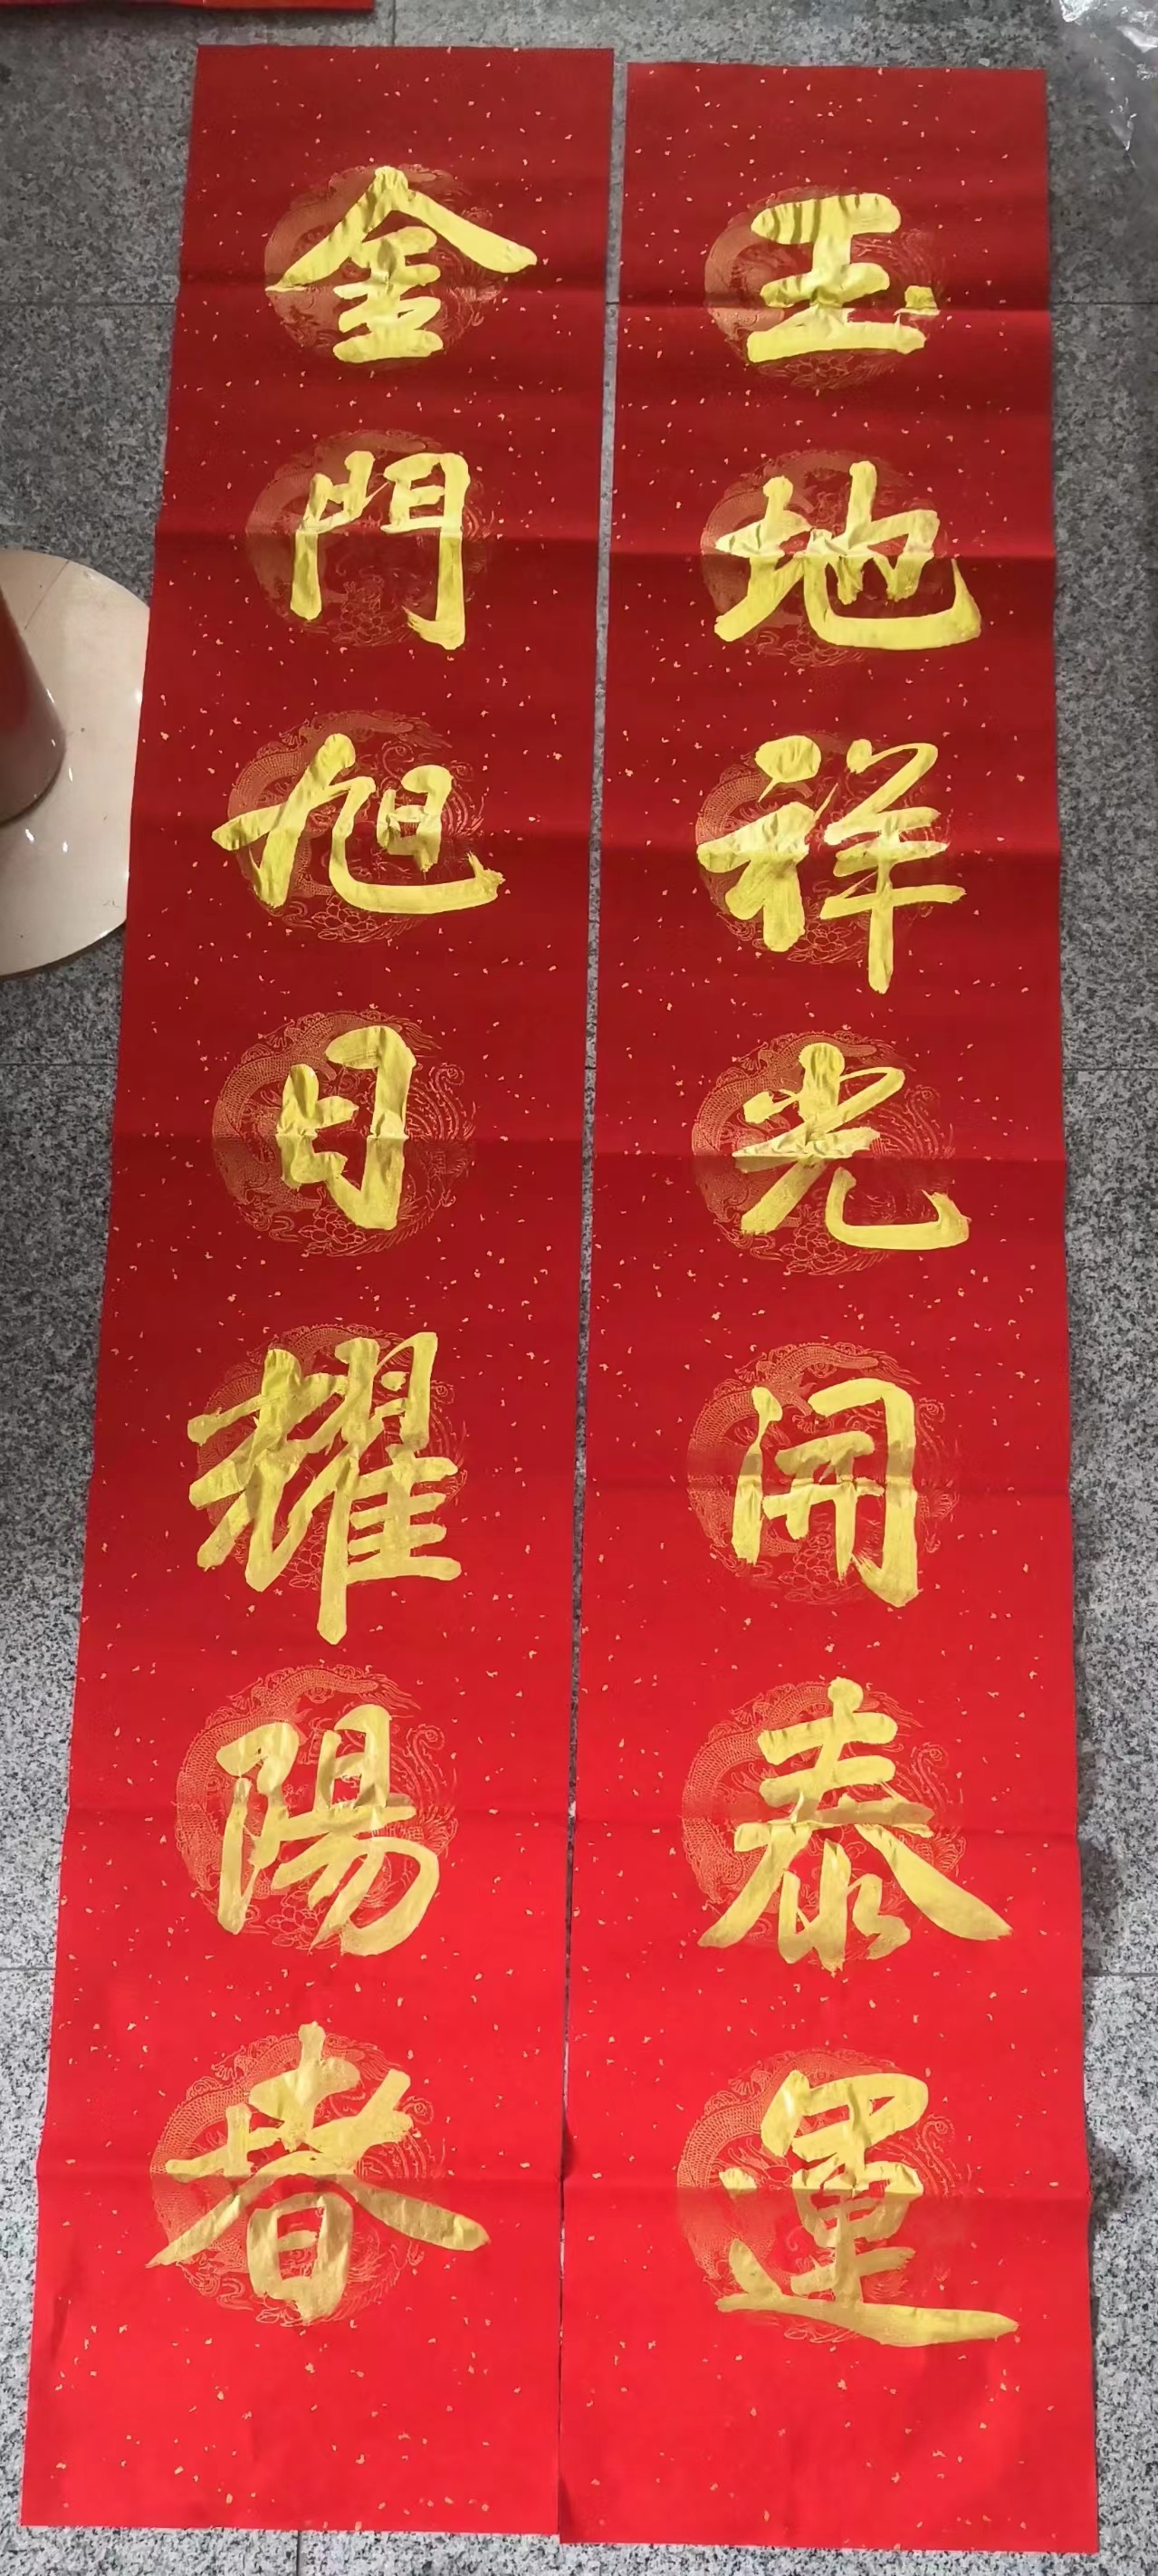 玉地祥光開泰運
金門旭日耀陽春